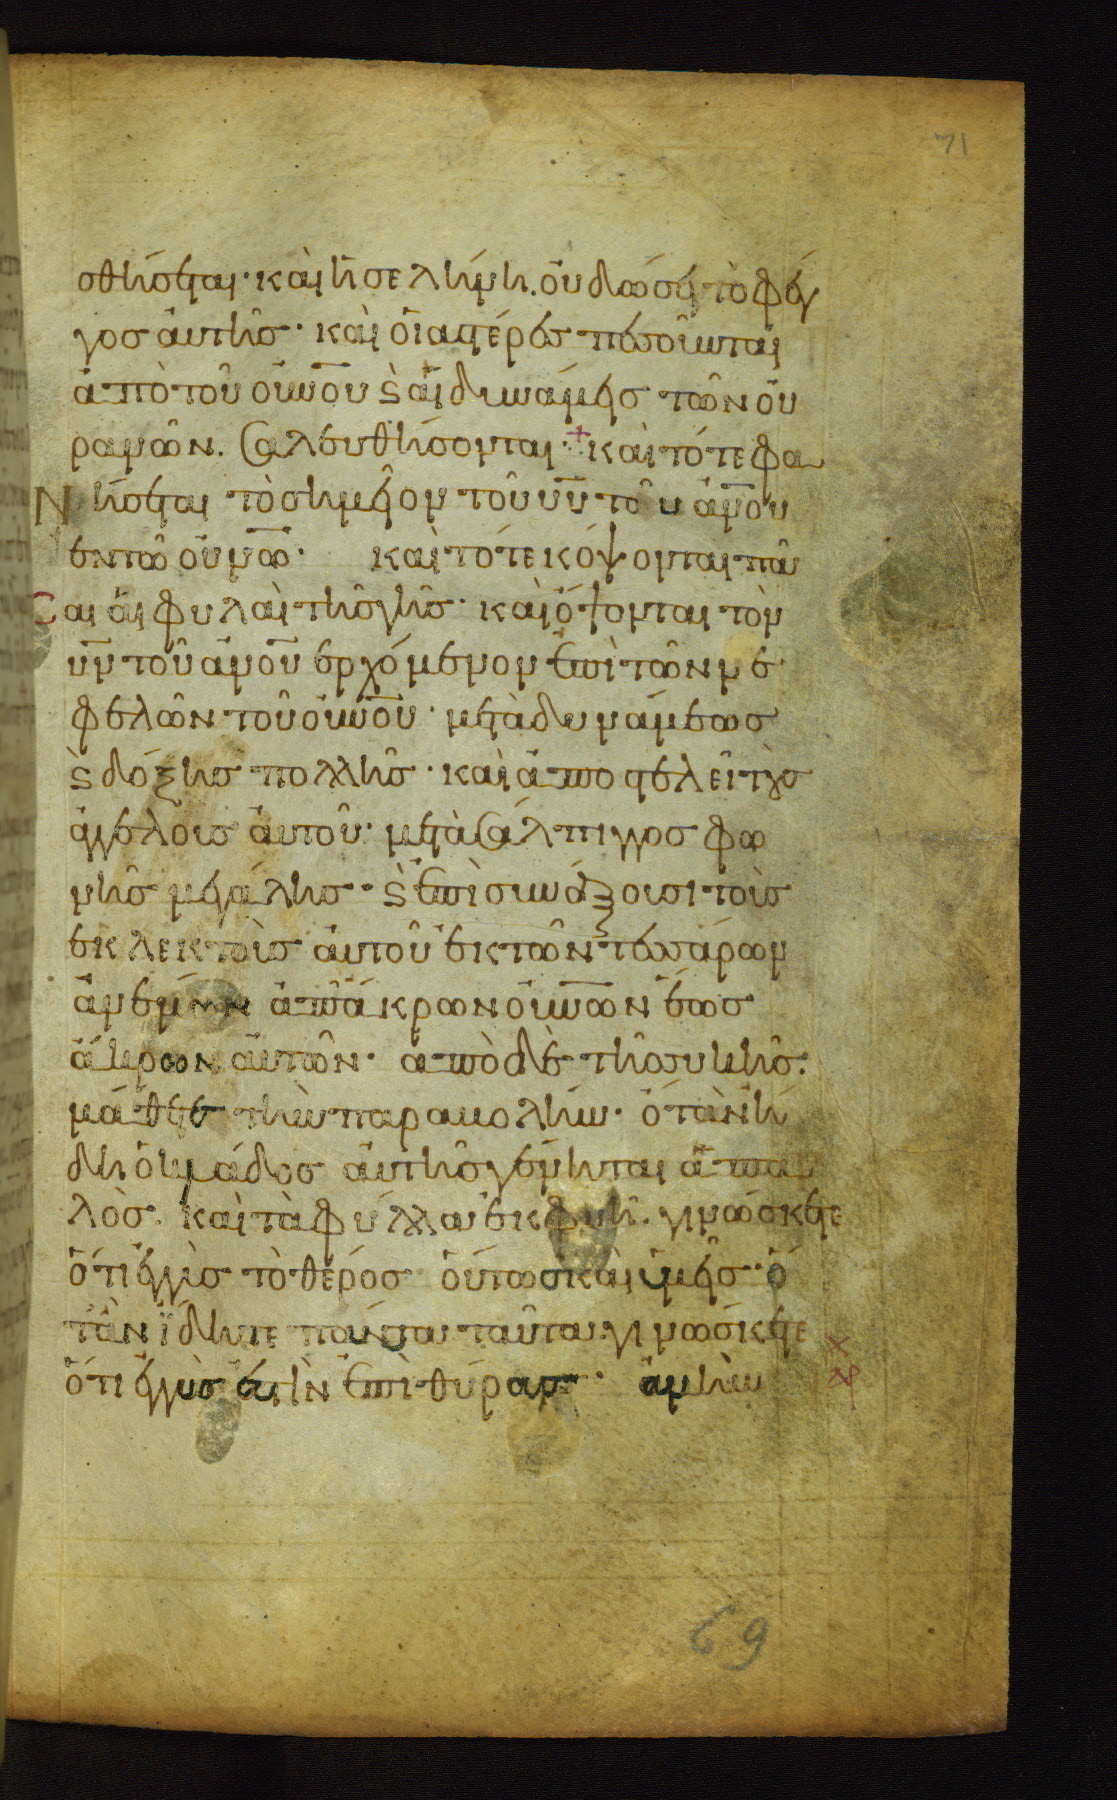 71
σθήσεται· καὶ ἡ σελήνη. οὐ δώσει τὸ φέγ
γος ἀυτῆς· καὶ οἱ ἀστέρες πεσοῦνται
ἀπὸ του οὐνοῦ ϛ ἁι δυνάμεις τῶν οὐ
ρανῶν. σαλευθήσονται· + καὶ τότε φα
νήσεται τὸ σημεῖον τοῦ υυ τοῦ ἀνου
ἐν τῶ οὐνῶ· καὶ τότε κόψονται πᾶ
σαι ἁι φυλαὶ τῆς γῆς· καὶ ὄψονται τὸν
υν τοῦ ἀνου ἐρχόμενον ἐπὶ τῶν νε
φελῶν τοῦ οὐνοῦ· μετὰ δυνάμεως
ϛ δόξης πολλῆς· καὶ ἀποστελεῖ τοὺς
ἀγγέλοις ἀυτοῦ· μετὰ σάλπιγγος φω
νῆς μεγάλης· ϛ ἐπισυνάξουσι τοὺς
ἐκλεκτοὺς ἀυτοῦ ἐκ τῶν τεσσάρων
ἀνέμων ἀπ' ἄκρων οὐνῶν ἕως
ἄκρων ἀυτῶν· ἀπὸ δὲ τῆς συκῆς.
μάθετε τὴν παραβολήν· ὅταν ἤ
δη ὁ κλάδος ἀυτῆς γένηται ἁπα
λὸς· καὶ τὰ φύλλα ἐκφυῆ. γινώσκετε
ὅτι ἐγγὺς τὸ θέρος οὕτως καὶ ὑμεῖς· ὅ
τὰν ἴδητε πάντα ταῦτα. γινώσκετε
ὅτι ἐγγὺς ἐστὶν ἐπὶ θύραις· ἀμὴν
69